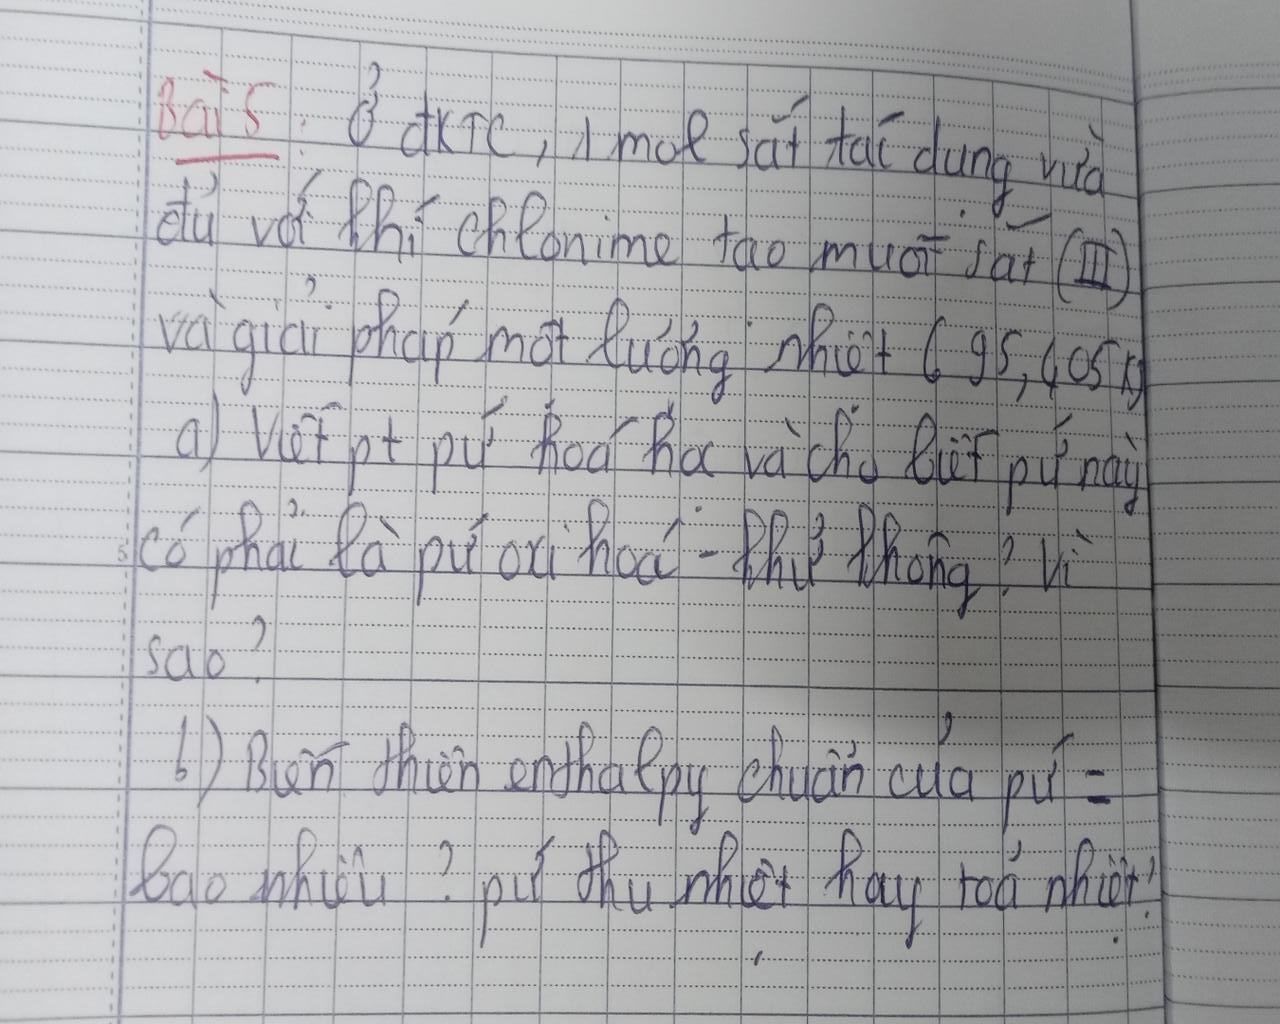 Bài 5: Ở đkTC, 1 mol sắt tác dụng vừa
đủ với khí chlorime tạo muối sắt (III)
và giải phóng một lượng nhiệt 6 95,405 kJ
a) Viết pt pứ hoá học và cho biết pứ này
có phải là pứ oxi hoá - khử không? Vì
sao?
b) Biến thiên enthalpy chuẩn của pứ =
bao nhiêu? pứ thu nhiệt hay toả nhiệt?